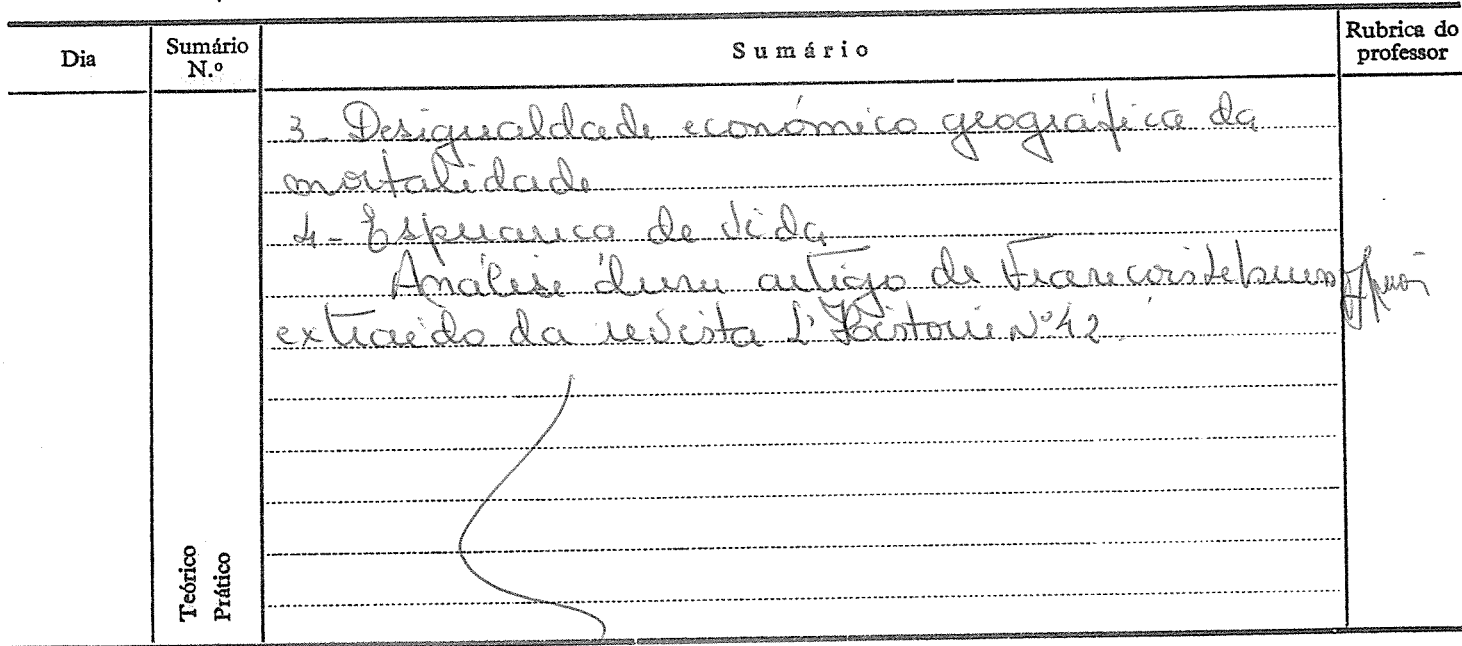 Dia
Sumário N.º
Sumário
Rubrica do professor
3 - Desigualdade económico geográfica da
mortalidade
4 - Esperança de vida
Análise dum artigo de François Lebrun
extraído da revista L'Histoire Nº 42.
Teórico
Prático